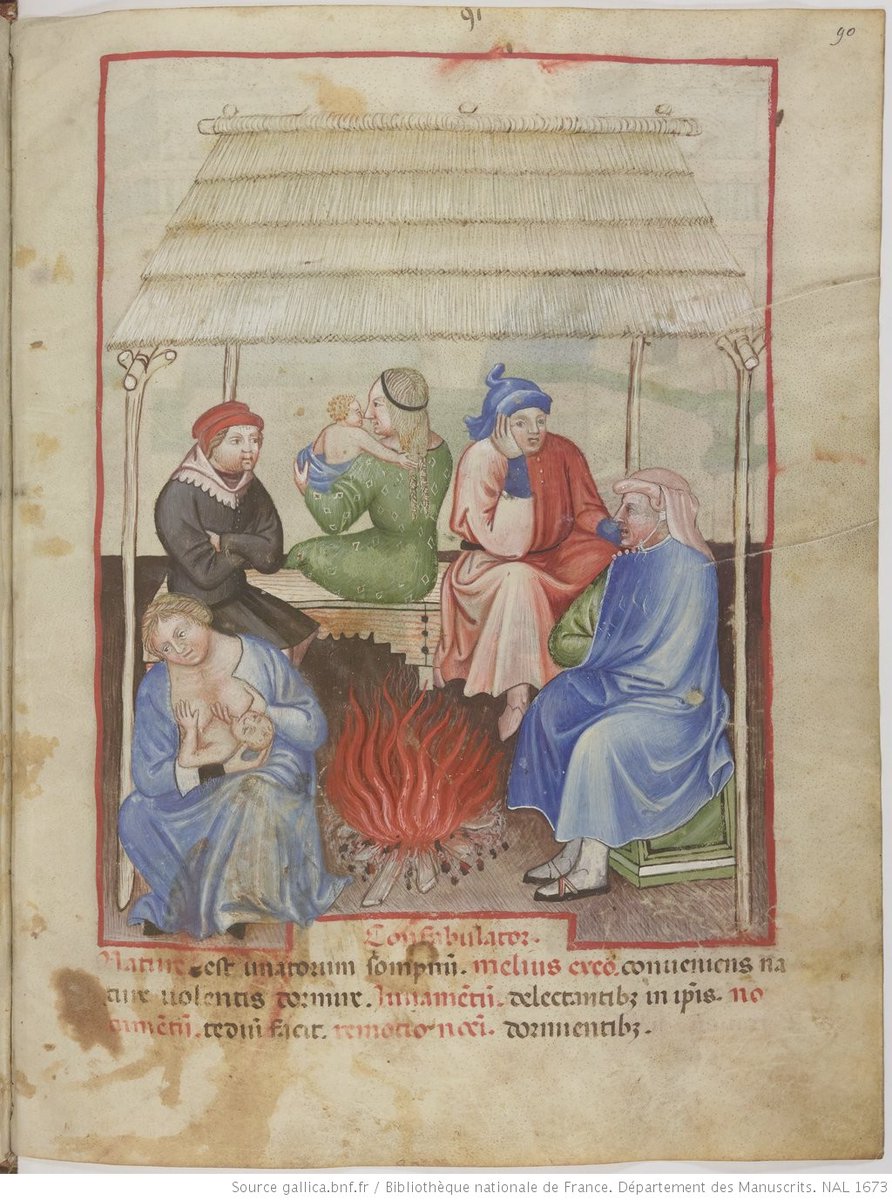 91
90
Confabulator.
Nature. est unatorum sompnii. melius exeo. conueniens na
ture uolentis dormire. Iuuametū. delectantibꝫ in ip̄is. no
cumētū. tediū facit. remotio noc̄i. dormientibꝫ.
Source gallica.bnf.fr / Bibliothèque nationale de France. Département des Manuscrits. NAL 1673